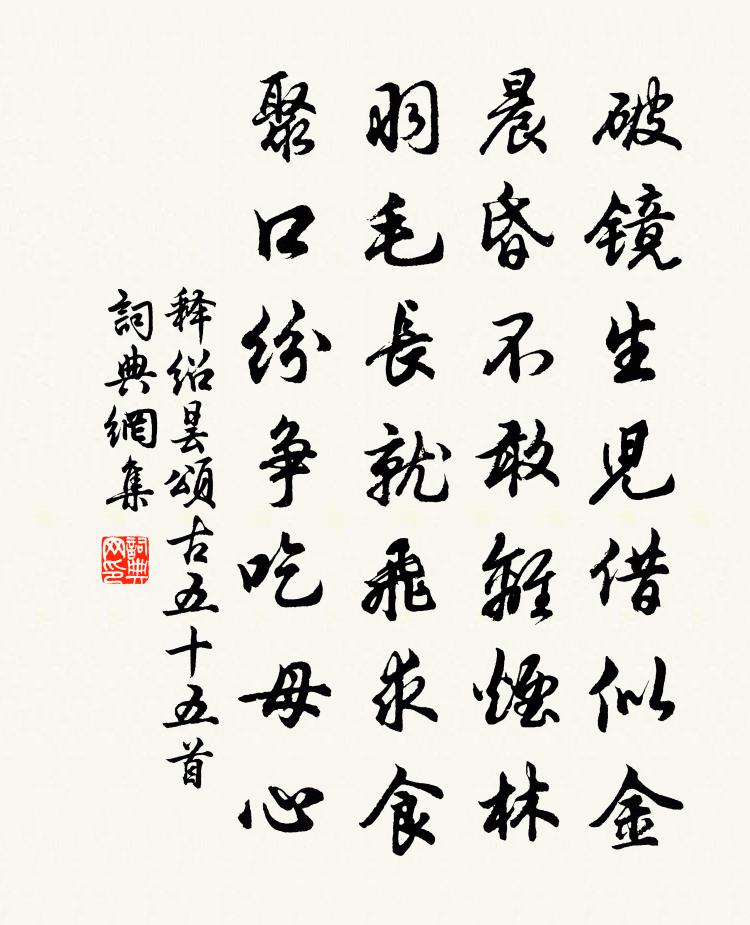 破镜生児借似金
晨昏不敢離煙林
羽毛長就飛求食
聚口纷争吃母心
释绍昙頌古五十五首
詞典網集
詞典网印